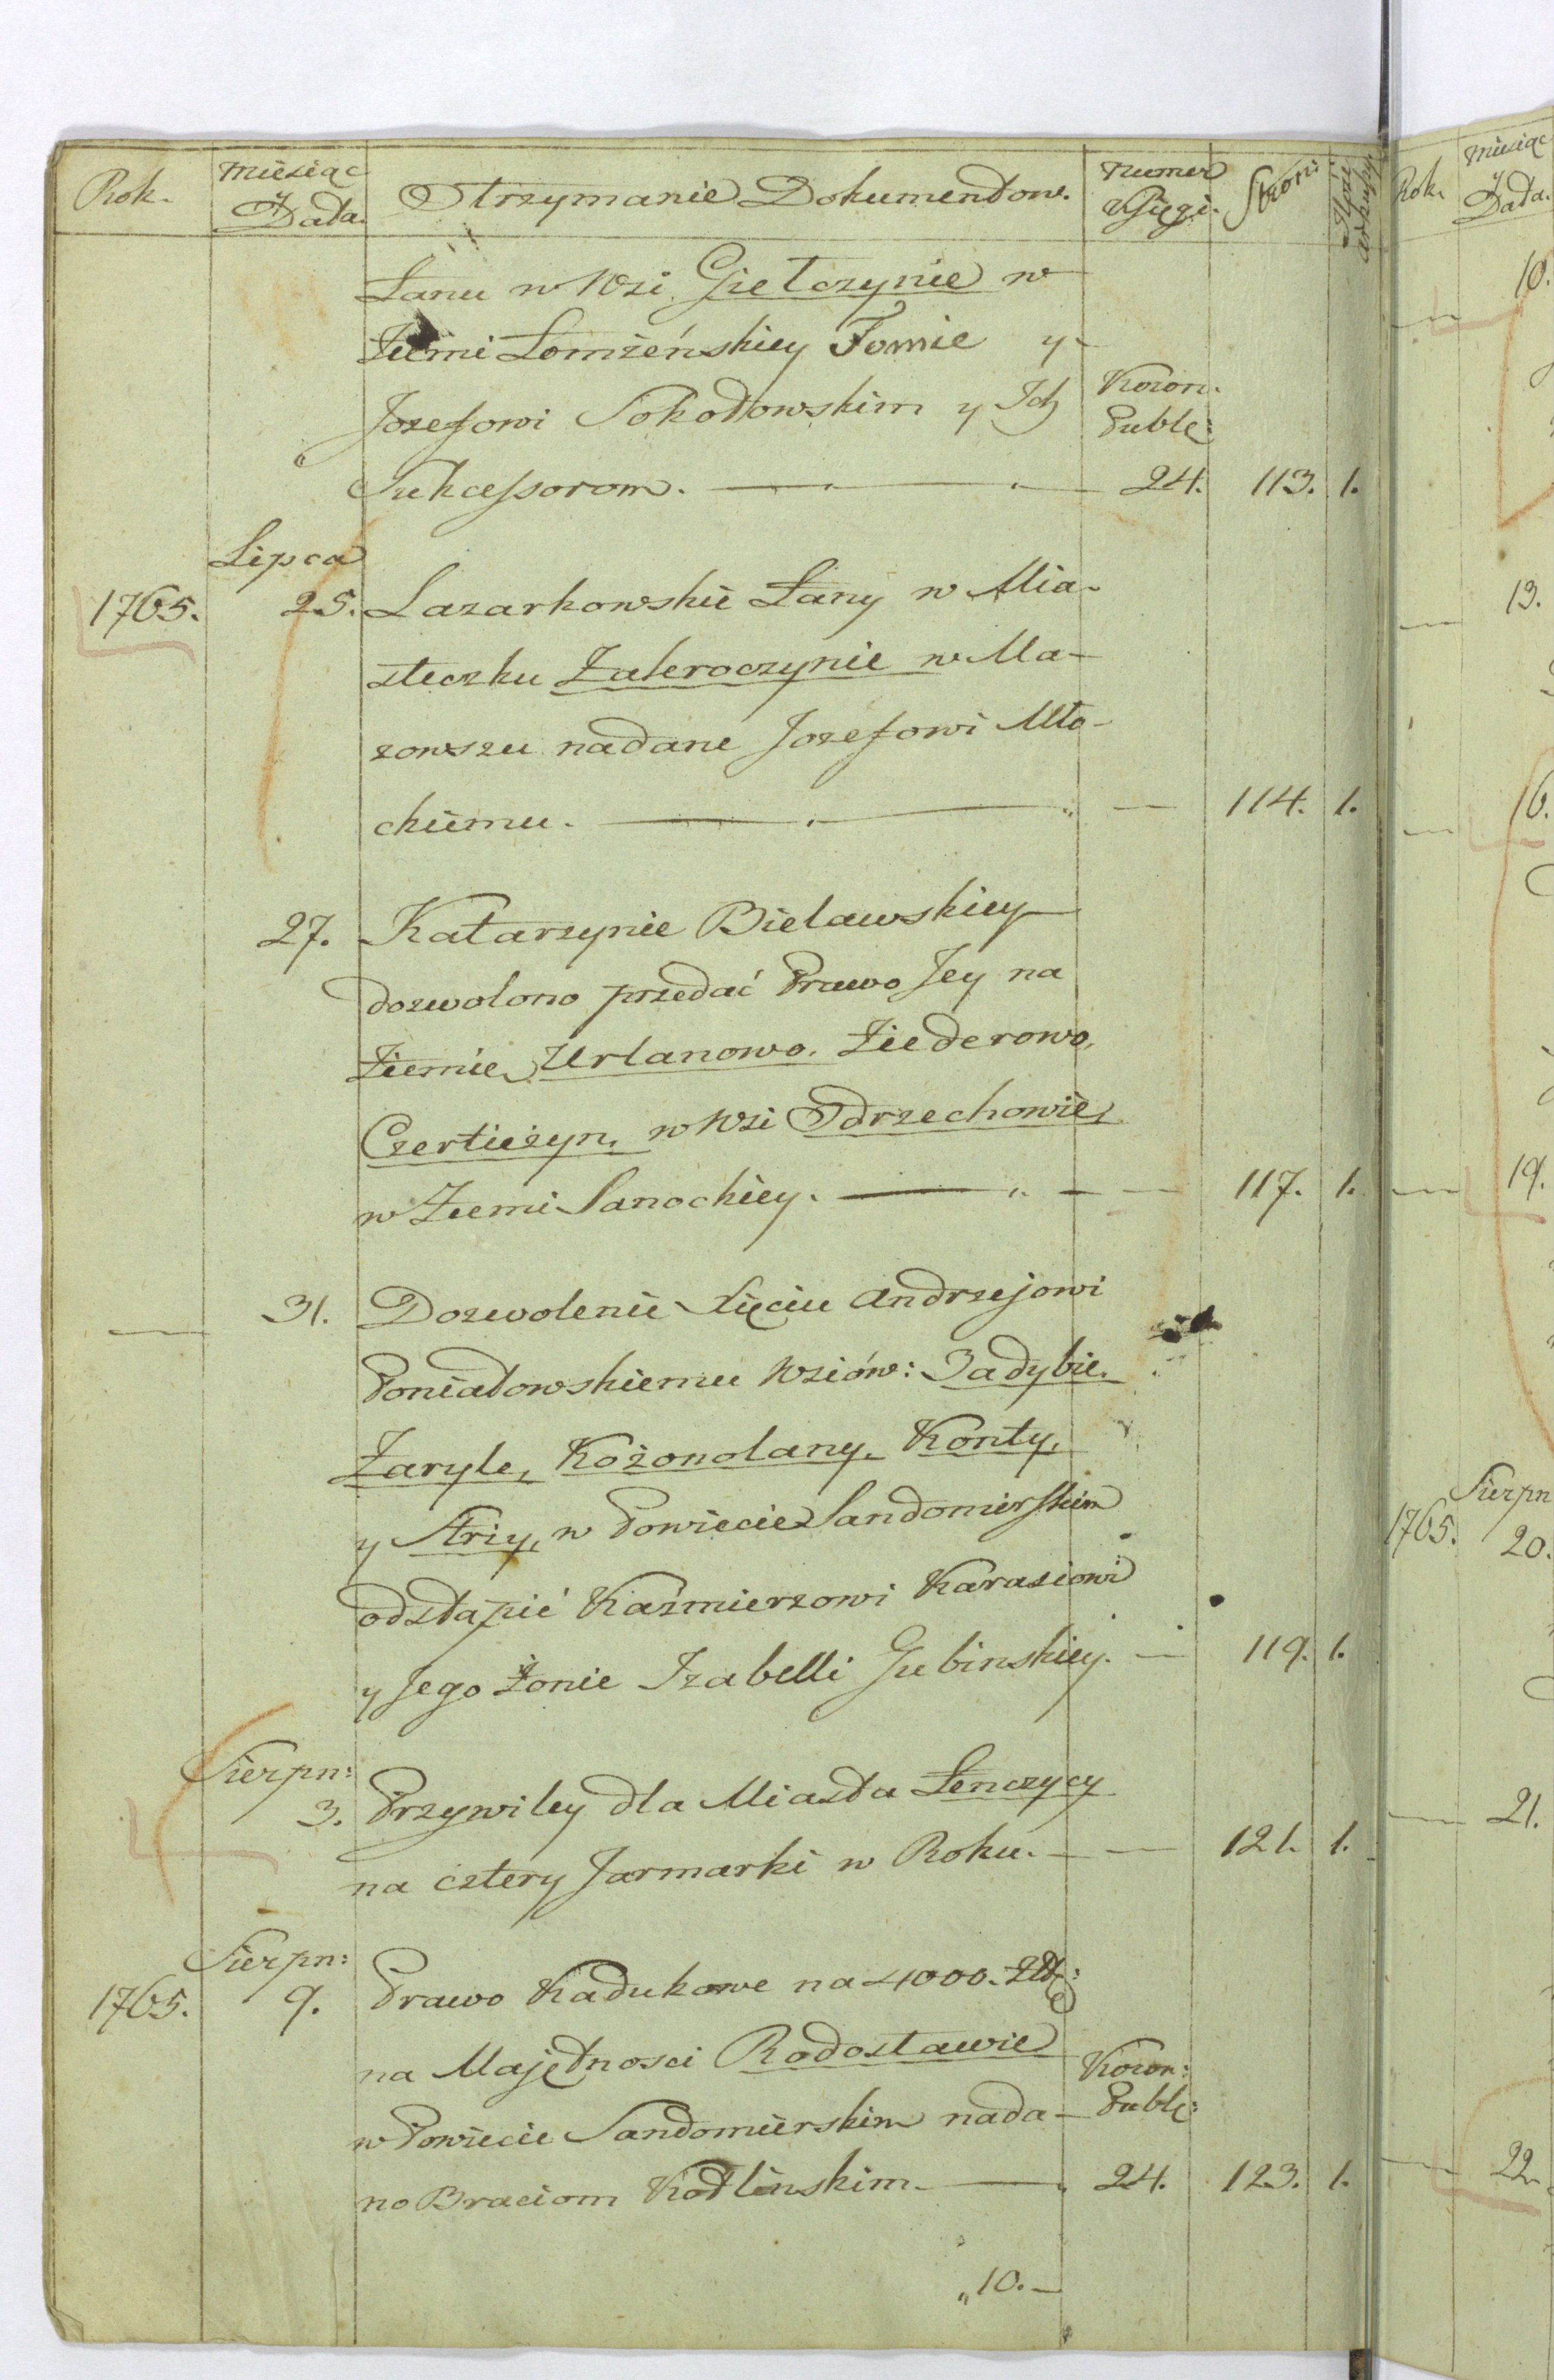 Rok. Miesiąc y Data. Otrzymanie Dokumentow. Numer Księgi. Stroni
Łanu w Wsi Giełczynie w
Ziemi Łomżeńskiey Tomie y
Jozefowi Sokołowskim y Ich Koron:
Publ:
Sukcessorom. 24. 113. 1.
Lipca
1765. 25. Lazarkowskie Łany w Mia-
steczku Zakroczynie w Ma-
zowszu nadane Jozefowi Mło-
ckiemu. — 114. 1.
27. Katarzynie Bielawskiey
dozwolono przedać Prawo Jey na
Ziemie Urlanowo. Ziederowo,
Czertieżyn, w Wsi Odrzechowie,
w Ziemi Sanockiey. — 117. 1.
— 31. Dozwolenie Xięciu Andrzejowi
Poniatowskiemu Wsiów: Zadybie.
Zaryle, Kożonolany. Konty,
y Striy, w Powiecie Sandomirskim
odstąpić Kaźmierzowi Karasiowi
y Jego Żonie Izabelli Gubinskiey. — 119. 1.
Sierpn:
3. Przywiley dla Miasta Łenczycy
na cztery Jarmarki w Roku. — 121. 1.
Sierpn:
1765. 9. Prawo Kadukowe na 4000. Zł:
na Majętnosci Radostawie Koron:
w Powiecie Sandomierskim nada- Publ:
no Braciom Kotlinskim. 24. 123. 1.
„10.—
Rok. Miesiąc y Data.
10.
— 13.
— 16.
— 19.
Sierpn
1765. 20.
— 21.
— 22.